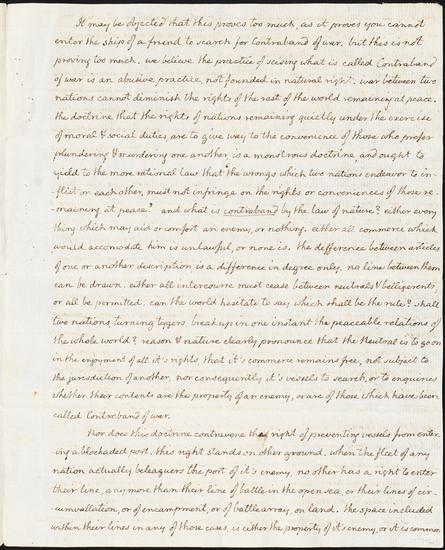 It may be objected that this proves too much, as it proves you cannot
enter the ships of a friend to search for Contraband of war. but this is not
proving too much. we believe the practice of seising what is called Contraband
of war is an abusive practice, not founded in natural right. war between two
nations cannot diminish the rights of the rest of the world remaining at peace.
the doctrine that the rights of nations remaining quietly under the exercise
of moral & social duties are to give way to the convenience of those who prefer
plundering & murdering one another, is a monstrous doctrine, and ought to
yield to the more rational law that 'the wrongs which two nations endeavor to in-
-flict on each other, must not infringe on the rights or conveniences of those re-
-maining at peace.' and what is contraband by the law of nature? either every
thing which may aid or comfort an enemy, or nothing. either all commerce which
would accomodate him is unlawful, or none is. the difference between articles
of one or another description, is a difference in degree only. no line between them
can be drawn. either all intercourse must cease between neutrals & belligerents,
or all be permitted. can the world hesitate to say which shall be the rule? shall
two nations turning tygers, break up in one instant the peaceable relations of
the whole world? reason & nature clearly pronounce that the Neutral is to go on
in the enjoyment of all it's rights, that it's commerce remains free, not subject to
the jurisdiction of another, nor consequently it's vessels to search, or to enquiries
whether their contents are the property of an enemy, or are of those which have been
called Contraband of war.
Nor does this doctrine contravene the right of preventing vessels from enter-
ing a blockaded port. this right stands on other ground. when the fleet of any
nation actually beleaguers the port of it's enemy, no other has a right to enter
their line, any more than their line of battle in the open sea, or their lines of cir-
cumvallation, or of encampment, or of battle array, on land. the space included
within their lines in any of those cases, is either the property of it's enemy, or it is common